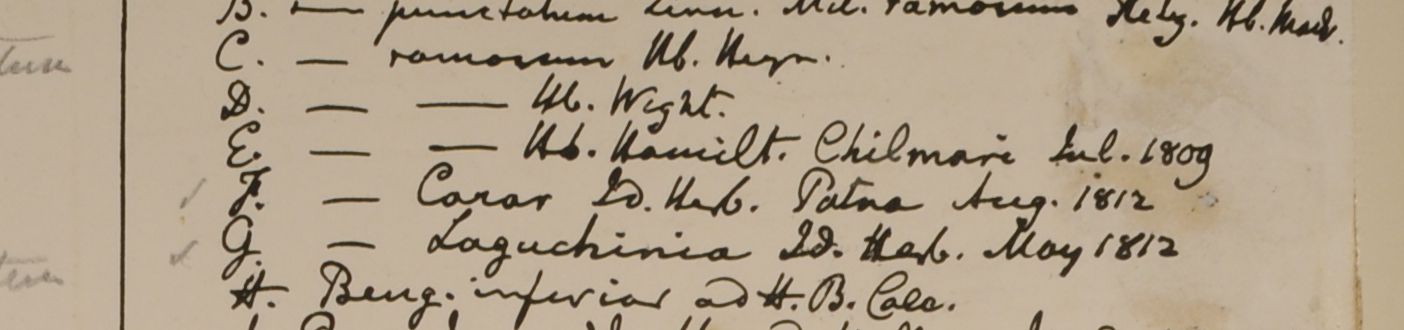 B. — punctatum Linn. Md. ramosum Hb. Madr.
C. — ramosum Hb. Heyn.
D. — — Hb. Wight.
E. — — Hb. Hamilt. Chilmari Jul. 1809
F. — Carar Id. Herb. Patna Aug. 1812
G. — Laguchinia Id. Herb. May 1812
H. Beng. inferior ad H. B. Calc.